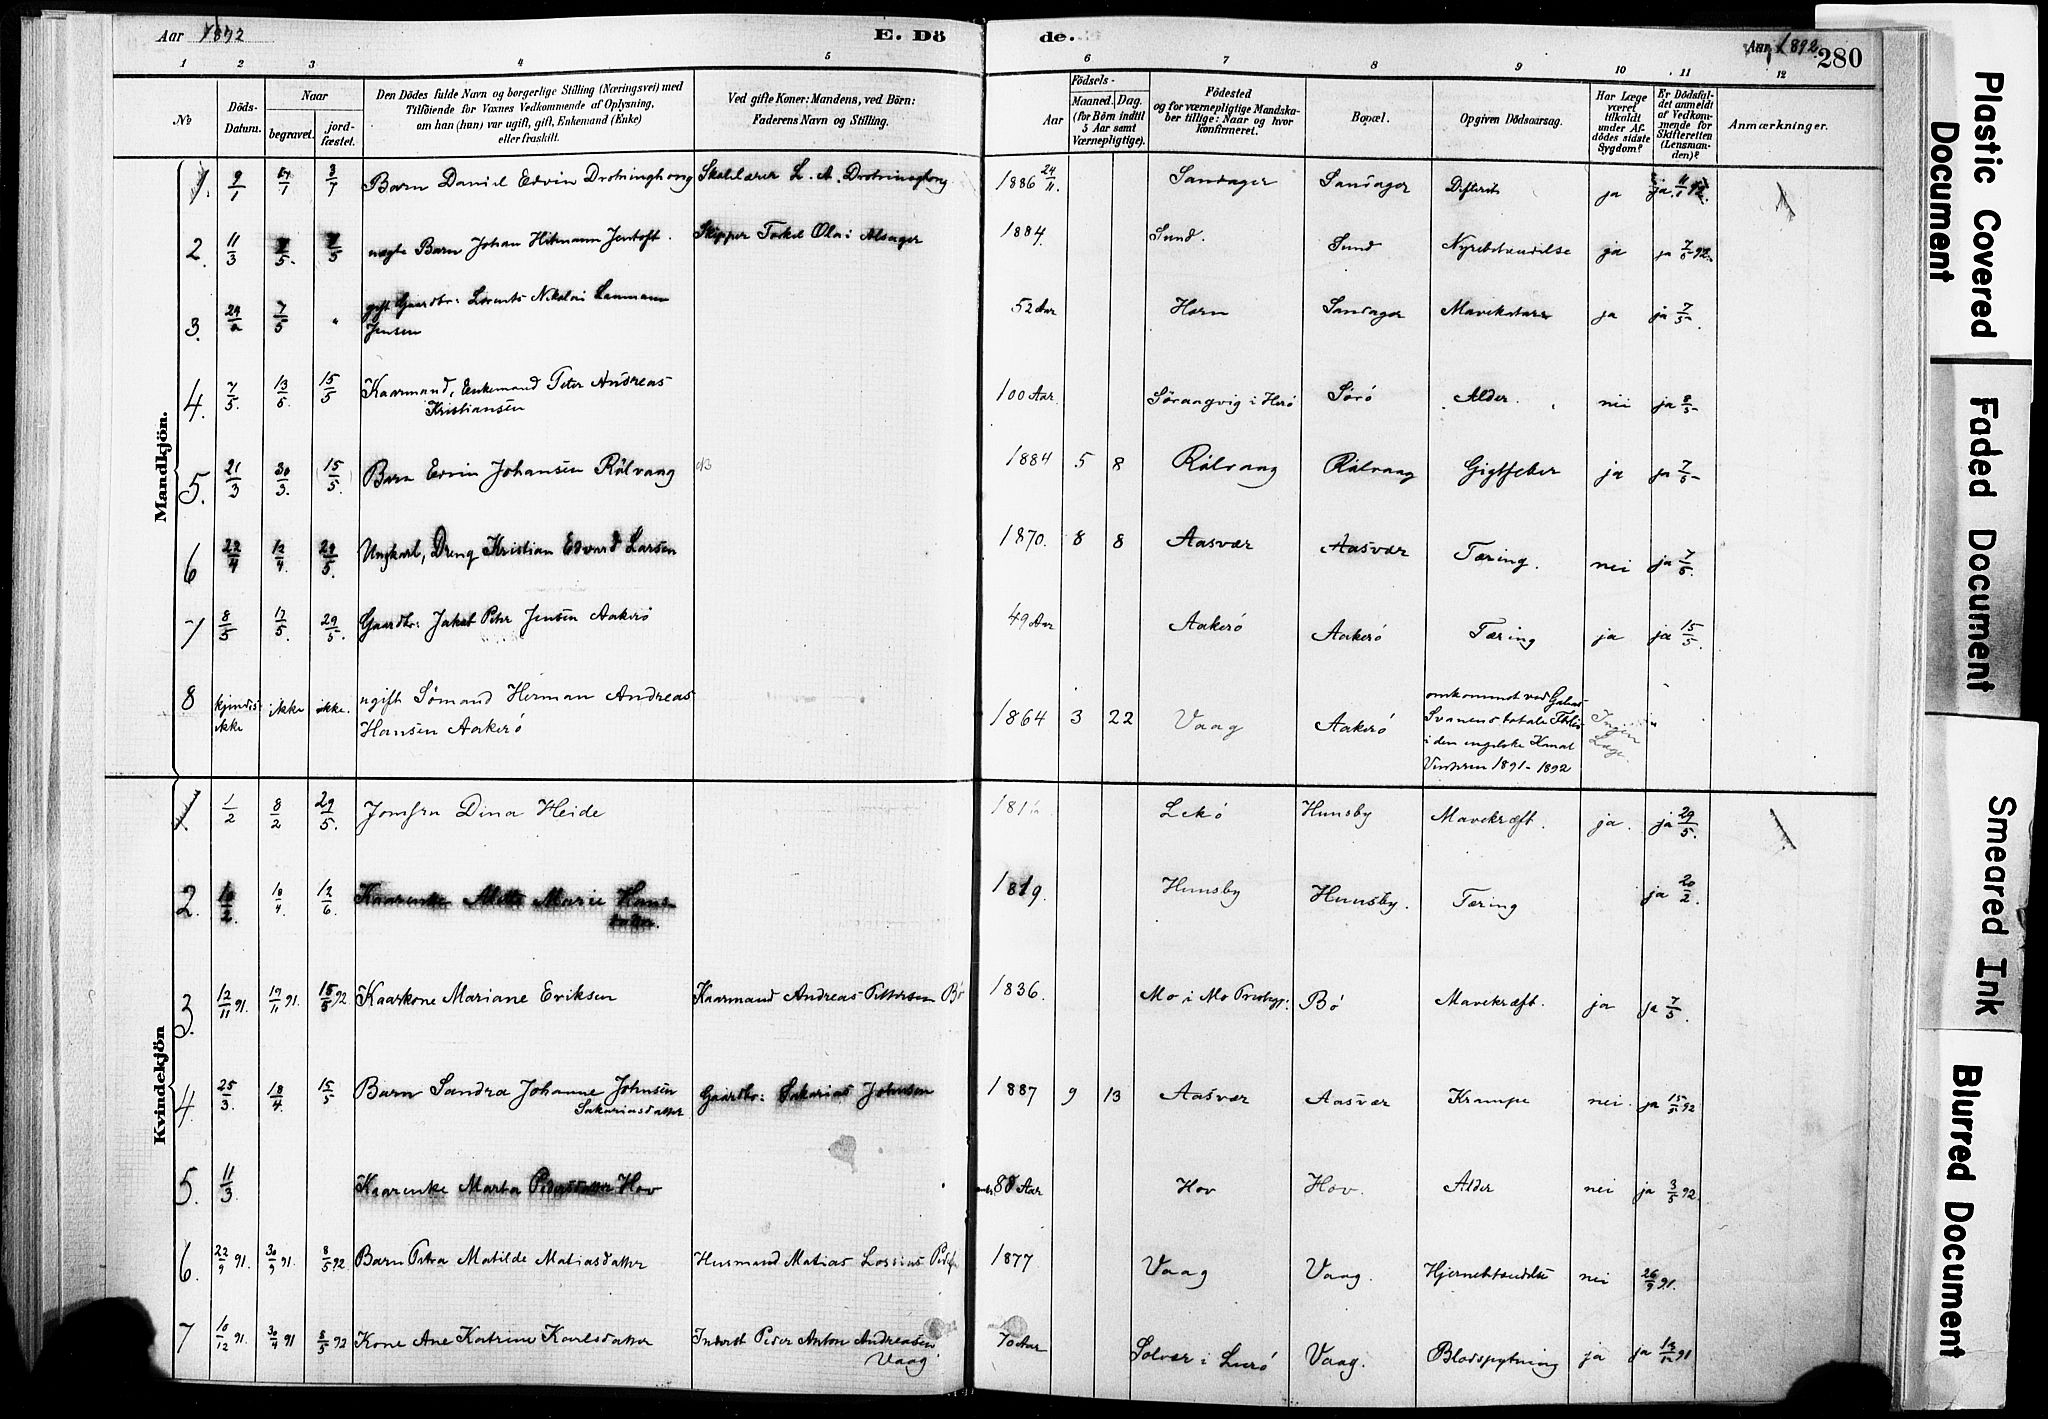 Aar 1892
E. Dö
de.
Aar 1892
280
1 2 3 4 5 6 7 8 9 10 11 12
No
Döds-Datum.
Naar
begravet.
jord-fæstet.
Den Dödes fulde Navn og borgerlige Stilling (Næringsvei) med
Tilföiende for Voxnes Vedkommende af Oplysning,
om han (hun) var ugift, gift, Enkemand (Enke)
eller fraskilt.
Ved gifte Koner: Mandens, ved Börn:
Faderens Navn og Stilling.
Födsels-
Aar
Maaned. Dag.
(for Börn indtil
5 Aar samt
Værnepligtige).
Födested
og for værnepligtige Mandska-
ber tillige: Naar og hvor
konfirmeret.
Bopæl.
Opgiven Dödsaarsag.
Har Læge
været
tilkaldt
under Af-
dödes sidste
Sygdom?
Er Dödsfal-
det anmeldt
af Vedkom-
mende for
Skifteretten
(Lensman-
den)?
Anmærkninger.
Mandkjön.
1. 9/1 Barn Daniel Edvin Skolelærer L. A. 1886 24/11 Sandager Sandager Difterit ja ja
2. 11/3 Barn Johan Skipper 1884. Sund. Sund ja ja 7/5 92.
3. 7/5 " gift Gaardbr: Lorents Nikolai
Jensen 52 Aar Sandager ja ja 7/5
4. 7/5. 13/5. 15/5 Kaarmand, Enkemand Peter Andreas
Kristiansen 100 Aar. i Herö Sörö Alder. nei ja 8/5
5. 21/3 30/3. 15/5. Barn Edvin Johansen Rölvaag 1884 5 8 Rölvaag Rölvaag Gigtfeber ja ja 7/5
6 22/4 29/5. Ungkarl, Dreng Kristian Edvard Larsen 1870. 8 8 Aasvær Aasvær Tæring. nei ja
7 8/5 29/5. Gaardbr: Jakob Peter Jensen Aakerö 49 Aar Aakerö Aakerö Tæring ja ja 15/5.
8 kjendes
ikke ikke ikke. ugift Sömand Herman Andreas
Hansen Aakerö 1864 3 22 Vaag Aakerö omkommet ved Galeas
Svanens totale Forlis
i den engelske Kanal
Vinteren 1891-1892 Ingen
Læge "
Kvindekjön
1 1/2 8/2 29/5. Jomfru Dina Heide Lekö Hunsby Mavekræft. ja. ja 29/5.
2. 10/2. 10/4. 12/6. Kaarenke Mette Marie Hans-
datter. 1819. Hunsby Hunsby. Tæring ja 20/2.
3. 12/11 91. 19/11 91. 15/5 92 Kaarkone Mariane Eriksen Kaarmand Andreas Pettersen Bö 1836. Mo i Mo Bö Mavekræft. ja ja 7/5.
4. 25/3. 18/4. 15/5 Barn Sandra Johanne Johnsen
Sakariasdatter Gaardbr: Sakarias Johnsen 1887 9 13 Aasvær Aasvær Krampe nei. ja 15/5 92
5. 11/3. Kaarenke Marta Pedersdatter Hov 88 Aar Hov Hov. Alder nei ja 3/5 92.
6. 22/9 91. 30/9 91. 8/5 92. Barn Petra Matilde Matiasdatter Husmand Matias Lossius 1877 Vaag Vaag. Hjernebetændelse nei 26/9 91.
7 10/12 91. 8/5 92 Kone Ane Katrine Karlsdatter Inderst Peder Anton Andreasen
Vaag 70 Aar Solvær i Lurö Vaag. Blodspytning ja ja
Plastic Covered
Document
Faded Document
Smeared Ink
Blurred Document